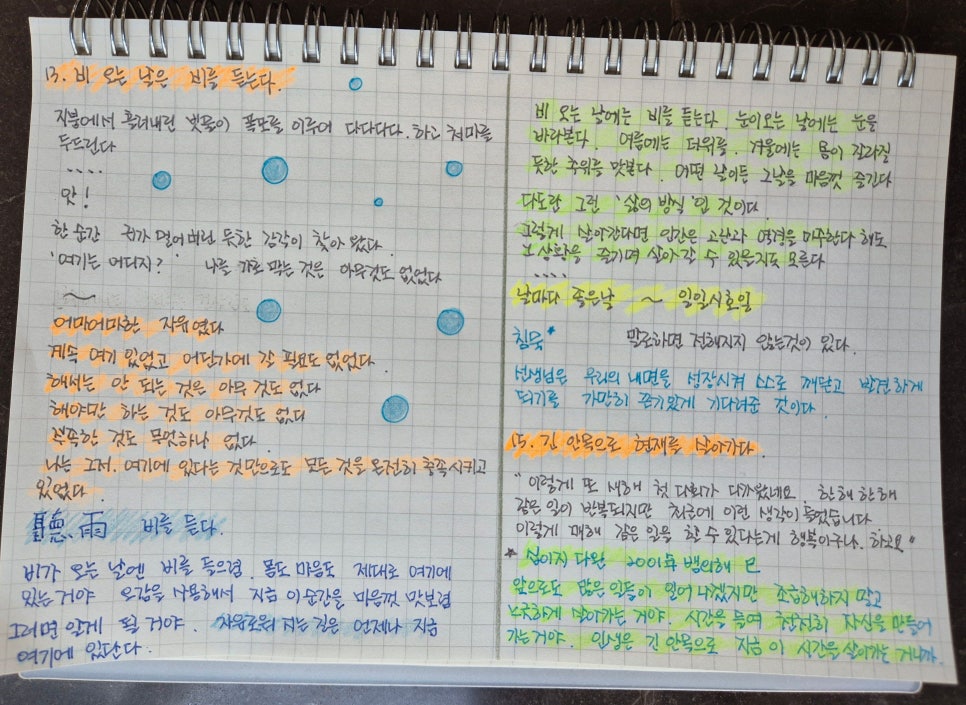 13. 비 오는 날은 비를 듣는다.
지붕에서 흘러내린 빗물이 폭포를 이루어 다다다다. 하고 처마를
두드린다
....
앗!
한 순간 귀가 멀어버린 듯한 감각이 찾아 왔다
'여기는 어디지?' 나를 가로 막는 것은 아무것도 없었다
~
어마어마한 자유였다
계속 여기 있었고 어딘가에 갈 필요도 없었다.
해서는 안 되는 것은 아무 것도 없다
해야만 하는 것도 아무것도 없다
부족한 것도 무엇하나 없다
나는 그저. 여기에 있다는 것만으로도 모든 것을 온전히 충족시키고
있었다.
聽雨 비를 듣다.
비가 오는 날엔 비를 들으렴. 몸도 마음도 제대로 여기에
있는거야 오감을 사용해서 지금 이순간을 마음껏 맛보렴
그러면 알게 될 거야. 자유로워 지는 길은 언제나 지금
여기에 있단다.
비 오는 날에는 비를 듣는다 눈이오는 날에는 눈을
바라본다. 여름에는 더위를. 겨울에는 몸이 갈라질
듯한 추위를 맛본다. 어떤 날이든 그날을 마음껏 즐긴다
다도란 그런 '삶의 방식'인 것이다
그렇게 살아간다면 인간은 고난과 역경을 마주한다 해도
그 상황을 즐기며 살아갈 수 있을지도 모른다
....
날마다 좋은날 ~ 일일시호일
침묵* 말로하면 전해지지 않는것이 있다.
선생님은 우리의 내면을 성장시켜 스스로 깨닫고 발견하게
되기를 가만히 끈기있게 기다려준 것이다.
15. 긴 안목으로 현재를 살아가다.
"이렇게 또 새해 첫 다회가 다가왔네요. 한해 한해
같은 일이 반복되지만 최근에 이런 생각이 들었습니다
이렇게 매해 같은 일을 할 수 있다는게 행복이구나. 하고요"
* 십이지 다완 2001年 뱀의해 巳
앞으로도 많은 일들이 일어 나겠지만 조급해하지 말고
느긋하게 살아가는 거야. 시간을 들여 천천히 자신을 만들어
가는거야. 인생은 긴 안목으로 지금 이 시간을 살아가는 거니까.